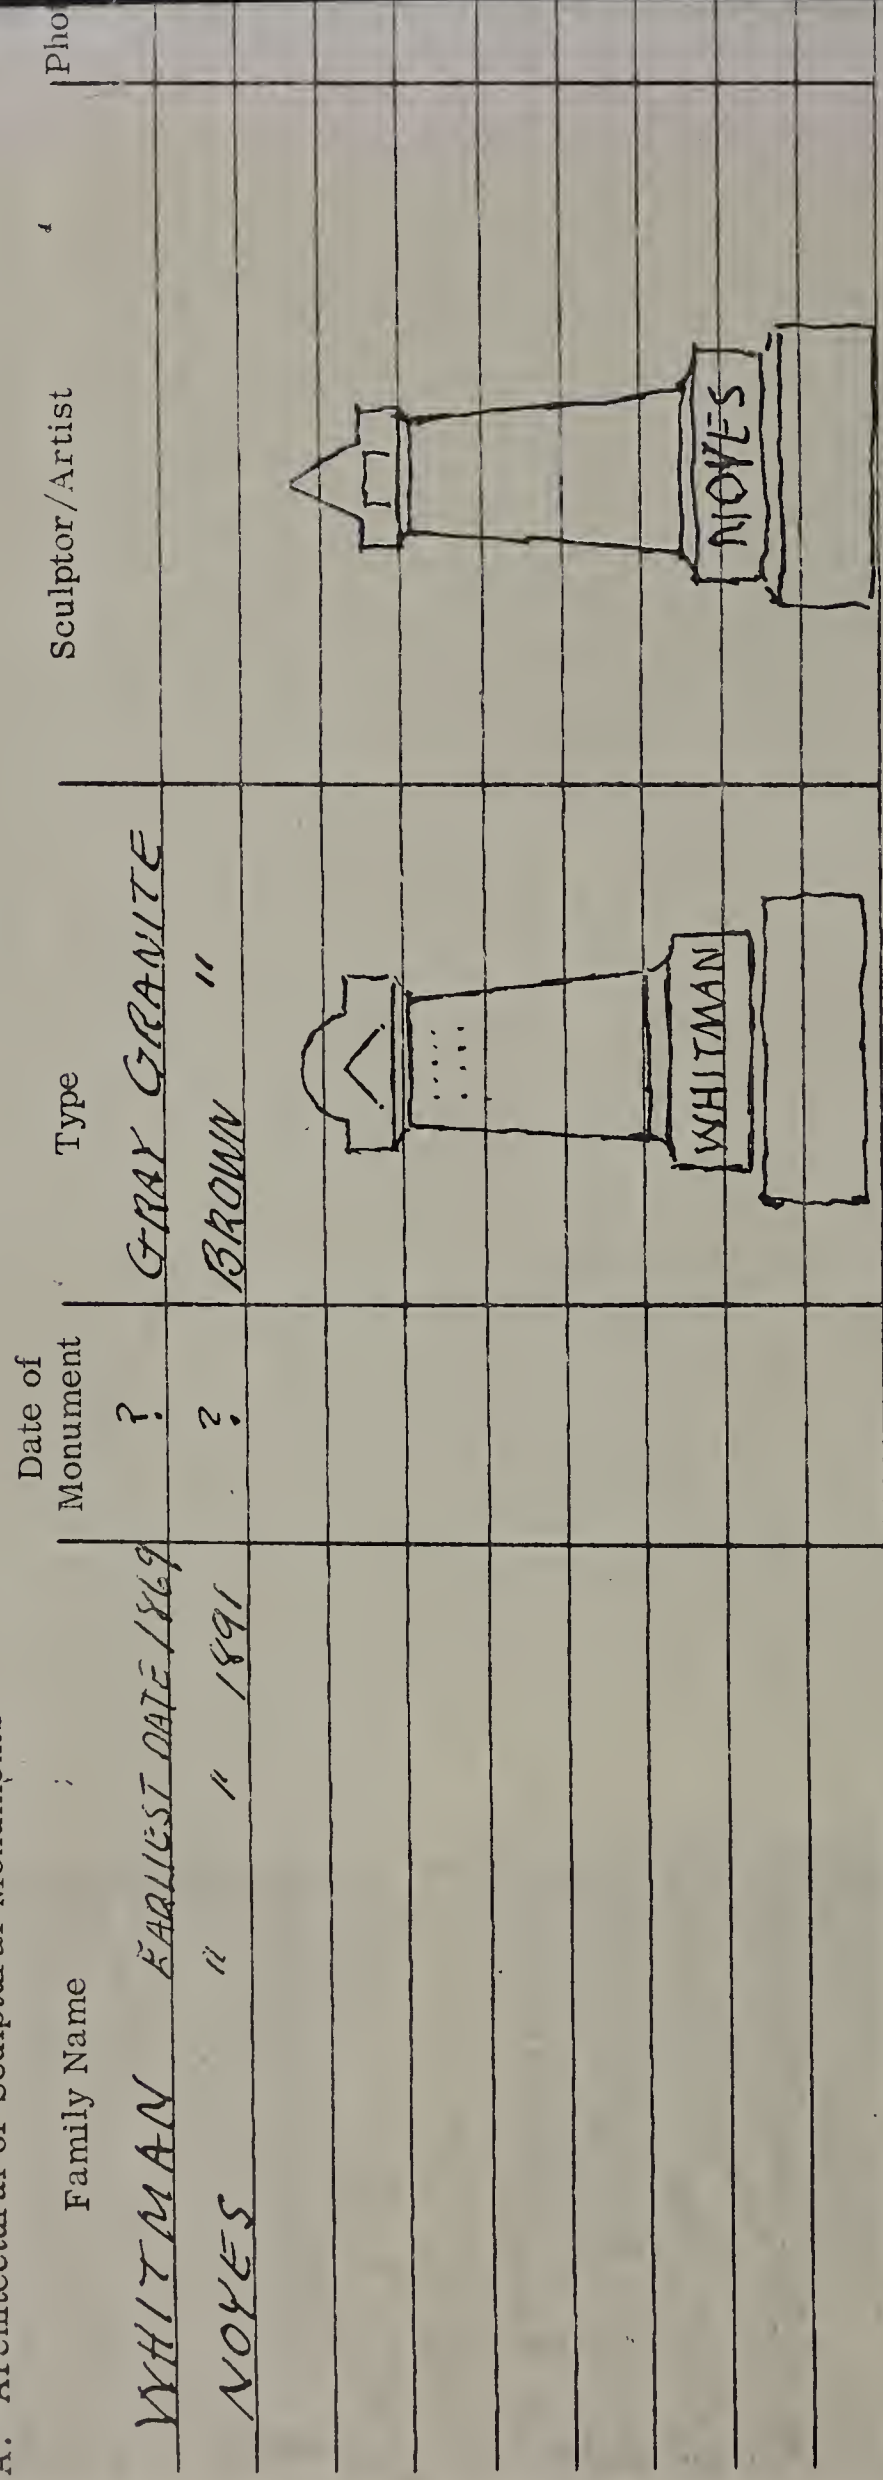 A. Architectural or Sculptural Monuments
Family Name
Date of
Monument
Type
Sculptor/Artist
Pho
WHITMAN EARLIEST DATE 1869 ? GRAY GRANITE
NOYES " " 1891 ? BROWN "
WHITMAN
NOYES